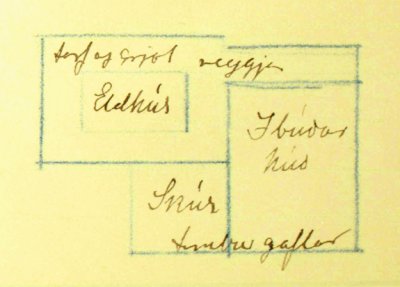 torf og grjót veggja
Eldhús
Íbúðar
hús
Skúr
timbur gaflar